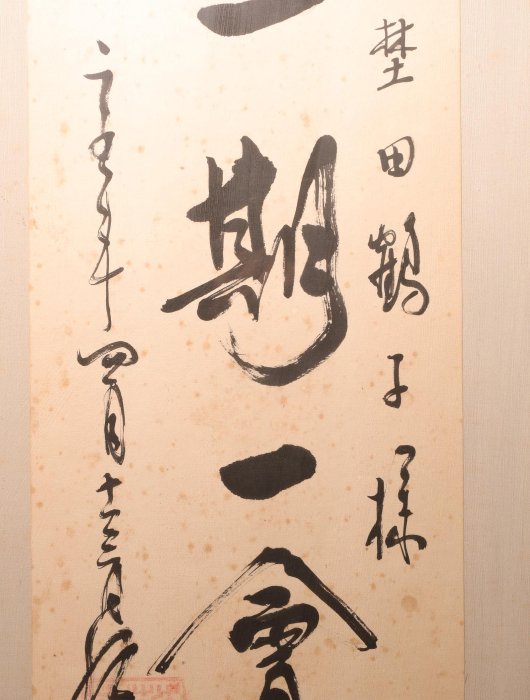 埜田鶴子様
一期一會
年四月十三日